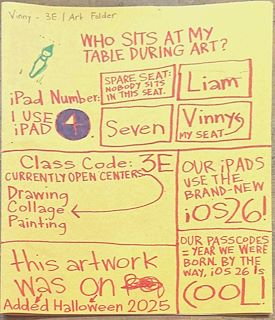 Vinny - 3E | Art Folder
WHO SITS AT MY
TABLE DURING ART?
SPARE SEAT:
NOBODY SITS
IN THIS SEAT.
Liam
iPad Number:
I USE
iPAD
4
Seven
Vinny
MY SEAT
Class Code: 3E
CURRENTLY OPEN CENTERS
Drawing
Collage
Painting
OUR iPADS
USE THE
BRAND-NEW
iOS26!
this artwork
was on
Added Halloween 2025
OUR PASSCODES
= YEAR WE WERE
BORN. BY THE
WAY, iOS 26 IS
COOL!